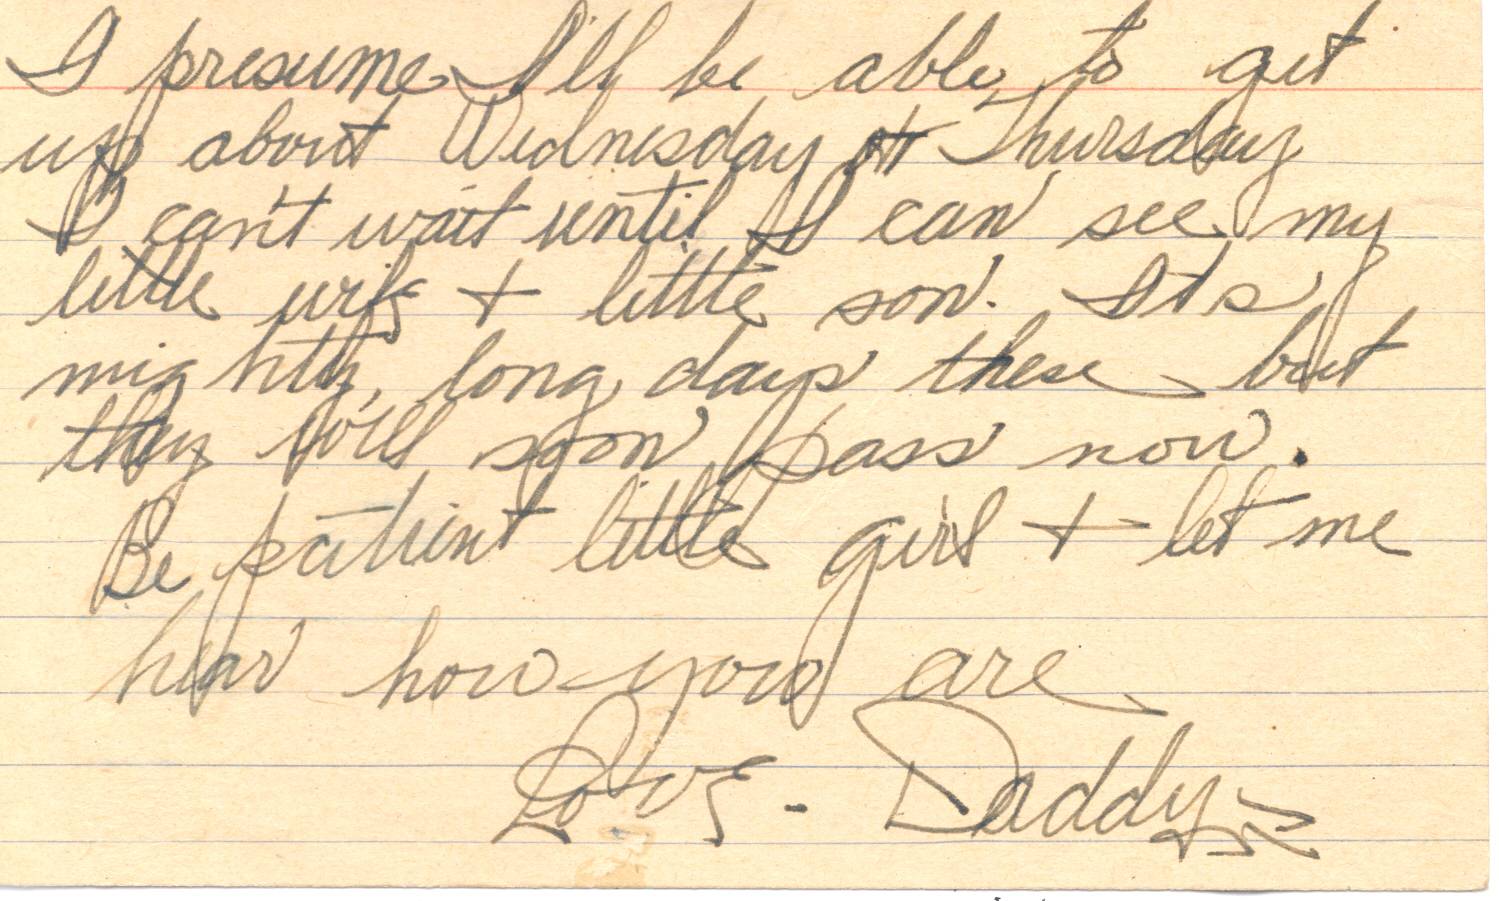 I presume I'll be able to get
up about Wednesday or Thursday
I can't wait until I can see my
little wife + little son. It's
mighty long days these but
they will soon pass now.
Be patient little girl + let me
hear how you are
Love - Daddy